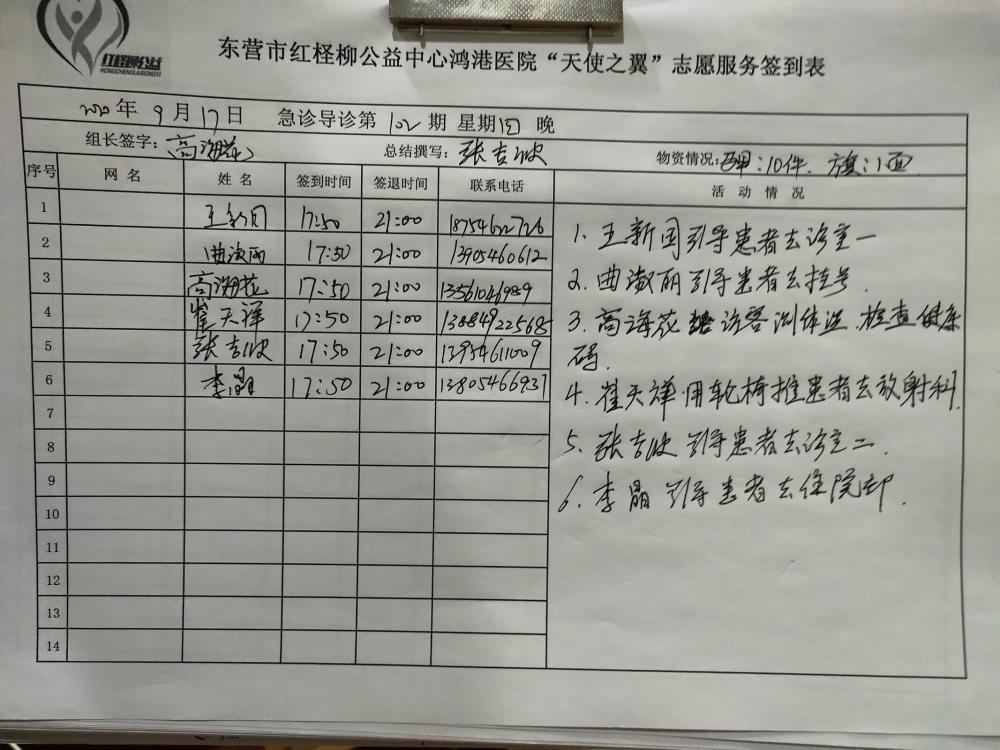 红柽柳公益
HONGCHENGLIUGONGYI
东营市红柽柳公益中心鸿港医院“天使之翼”志愿服务签到表
2020年 9月17日 急诊导诊第 102 期 星期四 晚
组长签字：高海花 总结撰写：张吉波 物资情况：马甲：10件. 旗：1面
序号 网 名 姓 名 签到时间 签退时间 联系电话 活 动 情 况
1 王新国 17:50 21:00 18754622726
2 曲淑丽 17:50 21:00 13905460612
3 高海花 17:50 21:00 13561046989
4 崔天祥 17:50 21:00 13884922568
5 张吉波 17:50 21:00 13954611009
6 李晶 17:50 21:00 13805466937
7
8
9
10
11
12
13
14
1. 王新国引导患者去诊室一
2. 曲淑丽引导患者去挂号.
3. 高海花 访客测体温.检查健康
码.
4. 崔天祥用轮椅推患者去放射科.
5. 张吉波 引导患者去诊室二.
6. 李晶 引导患者去住院部.